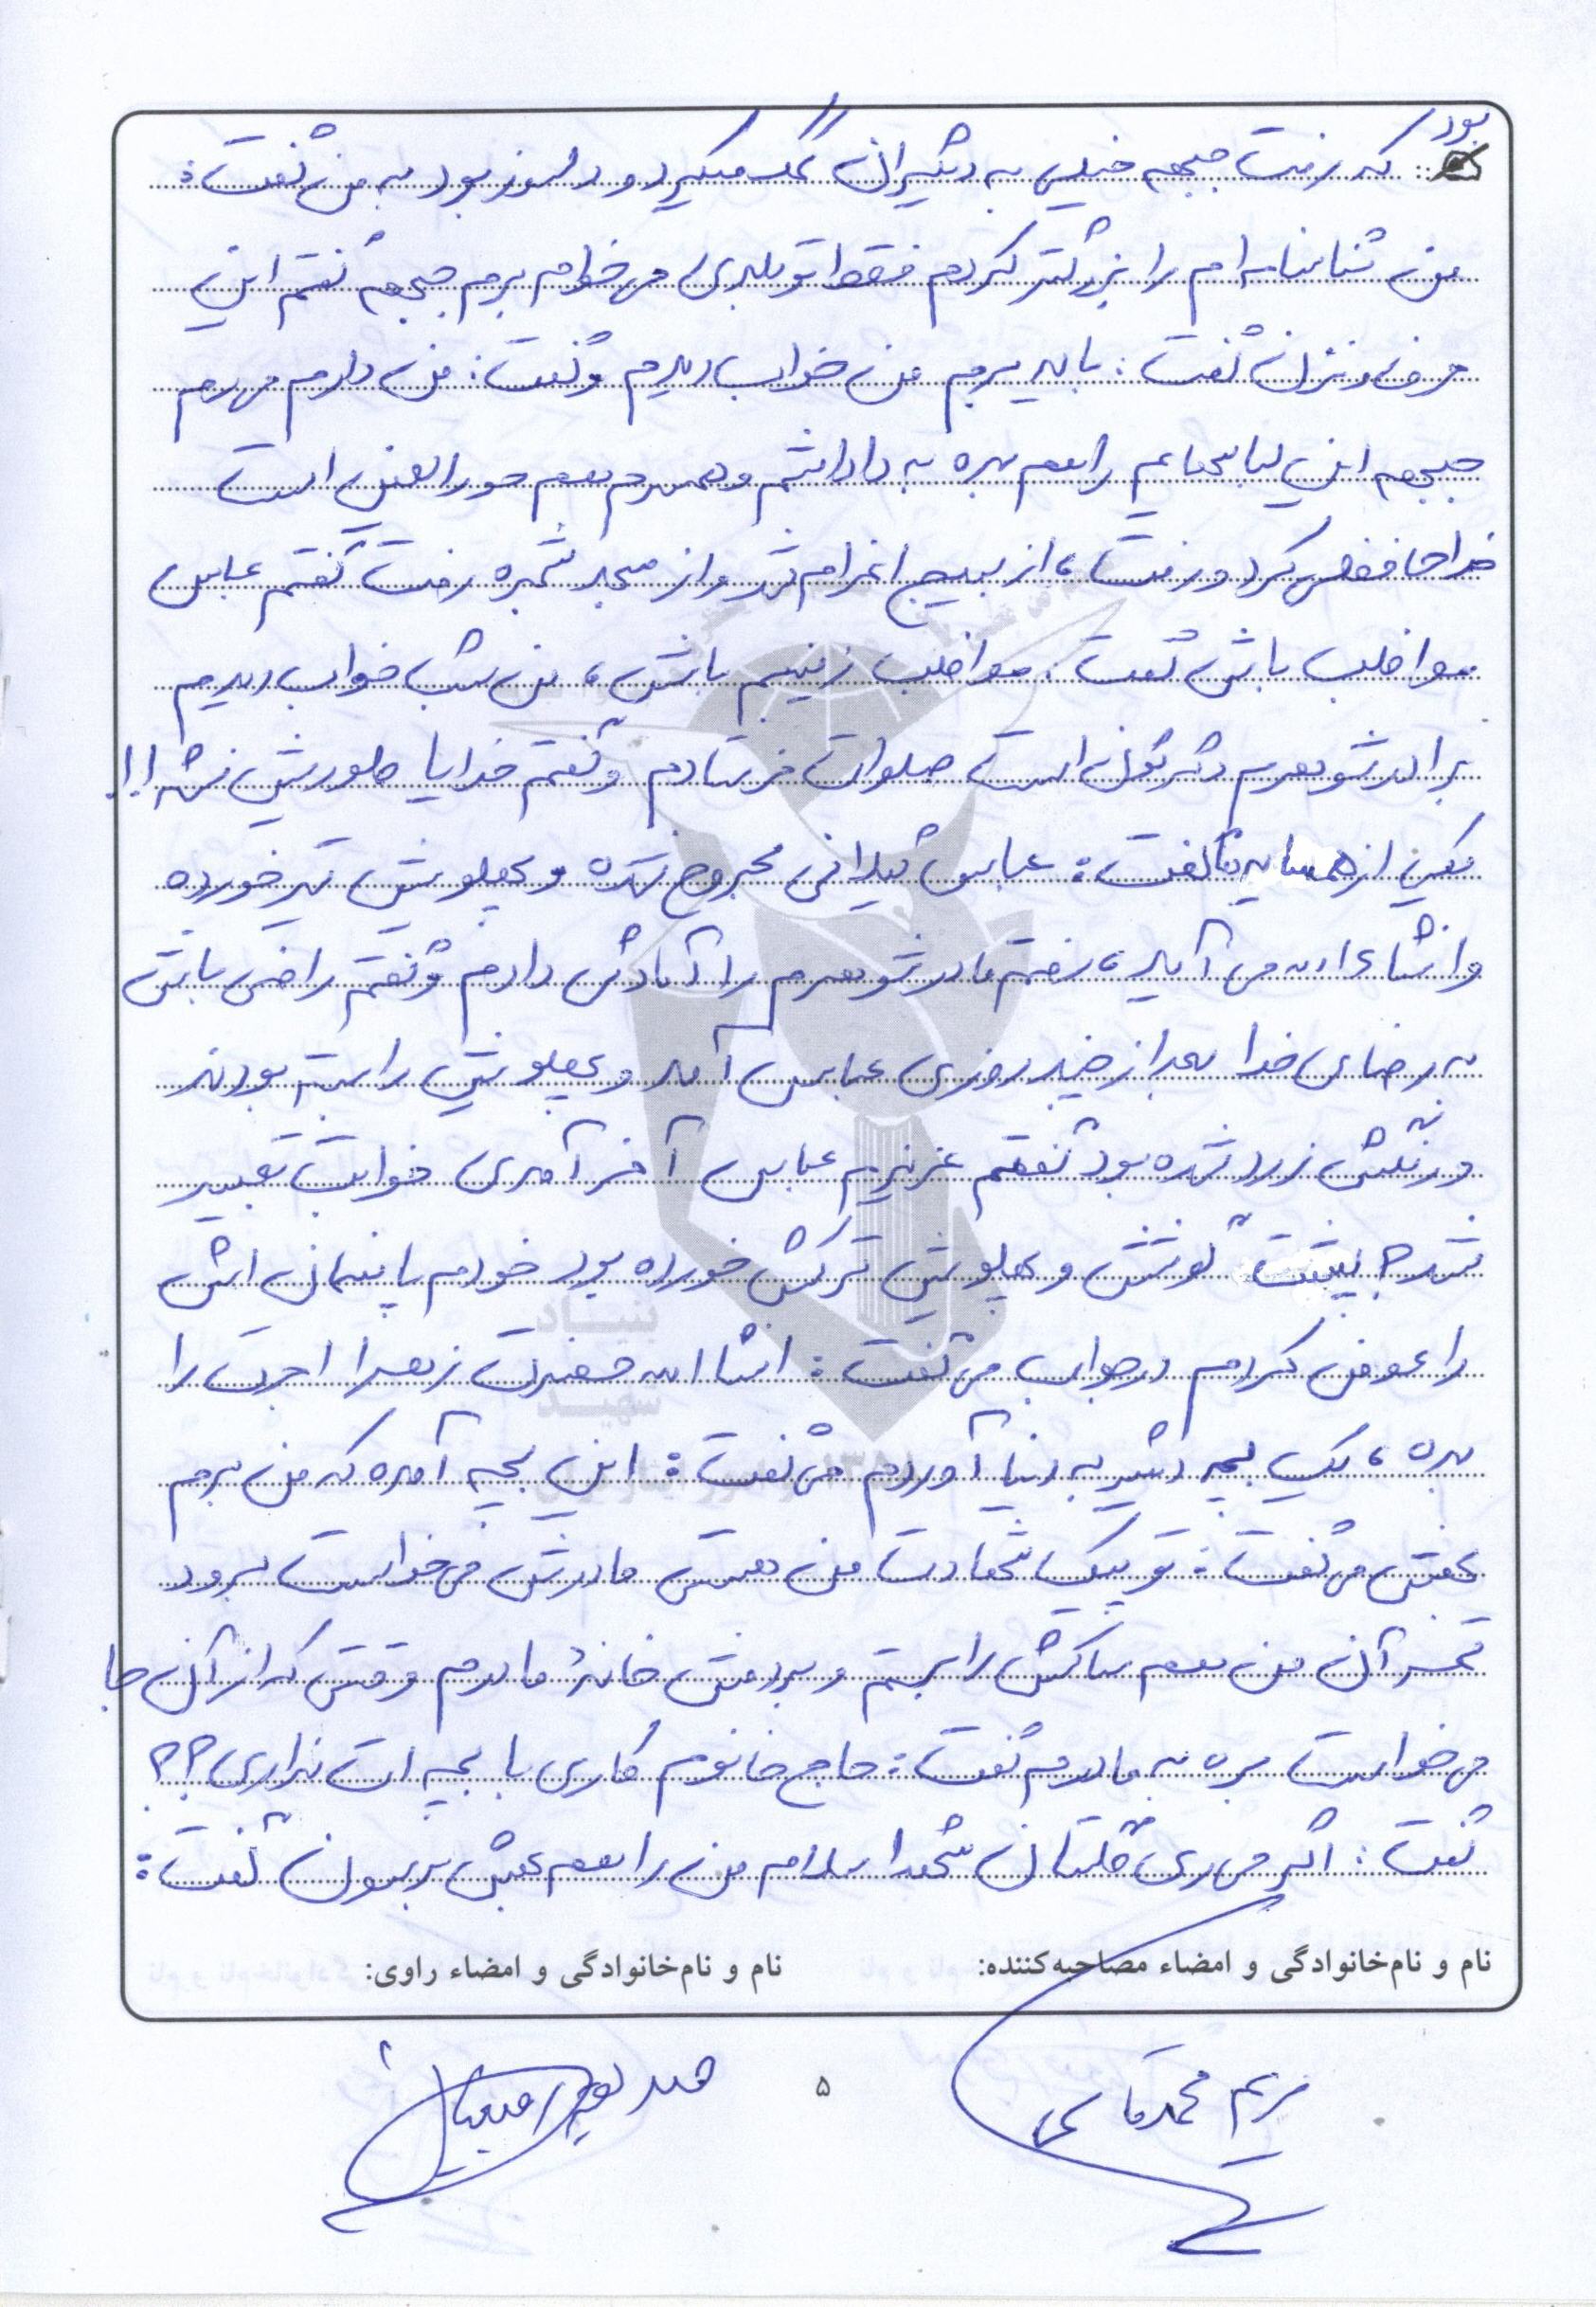 بود
که رفت جبهه خیلی به دیگران کمک میکرد و دلسوز بود به من گفت:
من شناسنامه ام را بزرگتر کردم فقط تو بلدی می خوام برم جبهه گفتم این
حرف و نزن گفت: باید برم من خواب دیدم و گفت: من دارم میرم
جبهه این لباسهایم را هم بده به داداشم و همسرم هم حورالعین است
خداحافظی کرد و رفت، از بسیج اعزام شد و از مسجد رفت گفتم عباس
مواظب باش گفت: مواظب زینبم باش، من شب خواب دیدم
برادر شوهرم است صلوات فرستادم و گفتم خدایا طوریش نشه!!
یکی از همسایه ها گفت: عباس مجروح شده و پهلویش تیر خورده
و انشاءا... می آید، رفتم مادر شوهرم را آمادش دادم و گفتم راضی باش
به رضای خدا بعد از چند روزی عباس آمد و پهلویش را بسته بودند
و رنگش زرد شده بود گفتم عزیزم عباس آخر آمدی خوابت تعبیر
شد؟ پشت گوشش و پهلویش ترکش خورده بود خودم پانسمان اش
را عوض کردم در جواب می گفت: انشاا... حضرت زهرا اجرت را
بده، یک بچه دیگر به دنیا آوردم می گفت: این بچه آمده که من برم
بهش می گفت: تو پیک شهادت من هستی مادرش می خواست برود
من هم ساکش را بستم و بردمش خانهٔ مادرم وقتی که از آن جا
می خواست بره به مادرم گفت: حاج خانوم کاری با بچه ات نداری؟؟
گفت: اگر می ری شهدا سلام من را هم بهش برسون گفت:
نام و نام‌خانوادگی و امضاء مصاحبه‌کننده: نام و نام‌خانوادگی و امضاء راوی:
مریم محمدقاسمی
۵
بنیاد
شهید